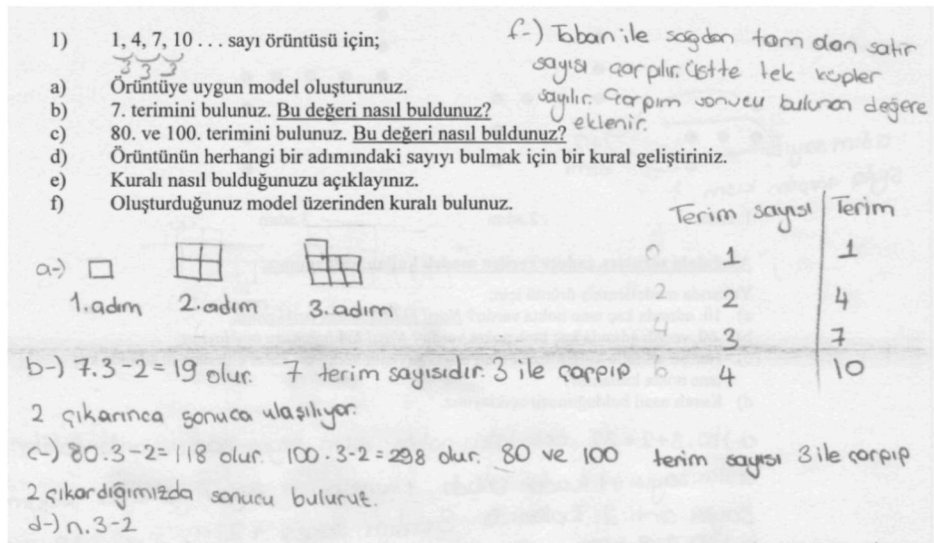 1) 1, 4, 7, 10 . . . sayı örüntüsü için;
3 3 3
a) Örüntüye uygun model oluşturunuz.
b) 7. terimini bulunuz. Bu değeri nasıl buldunuz?
c) 80. ve 100. terimini bulunuz. Bu değeri nasıl buldunuz?
d) Örüntünün herhangi bir adımındaki sayıyı bulmak için bir kural geliştiriniz.
e) Kuralı nasıl bulduğunuzu açıklayınız.
f) Oluşturduğunuz model üzerinden kuralı bulunuz.
f-) Taban ile sağdan tam olan satır
sayısı çarpılır. Üstte tek küpler
sayılır. Çarpım sonucu bulunan değere
eklenir.
Terim sayısı Terim
0 1 1
2 2 4
4 3 7
6 4 10
a-)
1.adım 2.adım 3.adım
b-) 7.3-2=19 olur. 7 terim sayısıdır. 3 ile çarpıp
2 çıkarınca sonuca ulaşılıyor.
c-) 80.3-2=118 olur. 100.3-2=298 olur. 80 ve 100 terim sayısı 3 ile çarpıp
2 çıkardığımızda sonucu buluruz.
d-) n.3-2